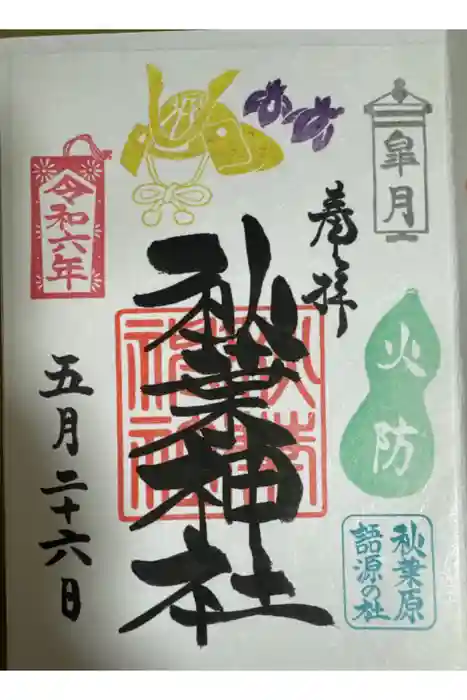 皐月
奉拝
火防
秋葉原
語源の社
秋葉神社
令和六年
五月二十六日